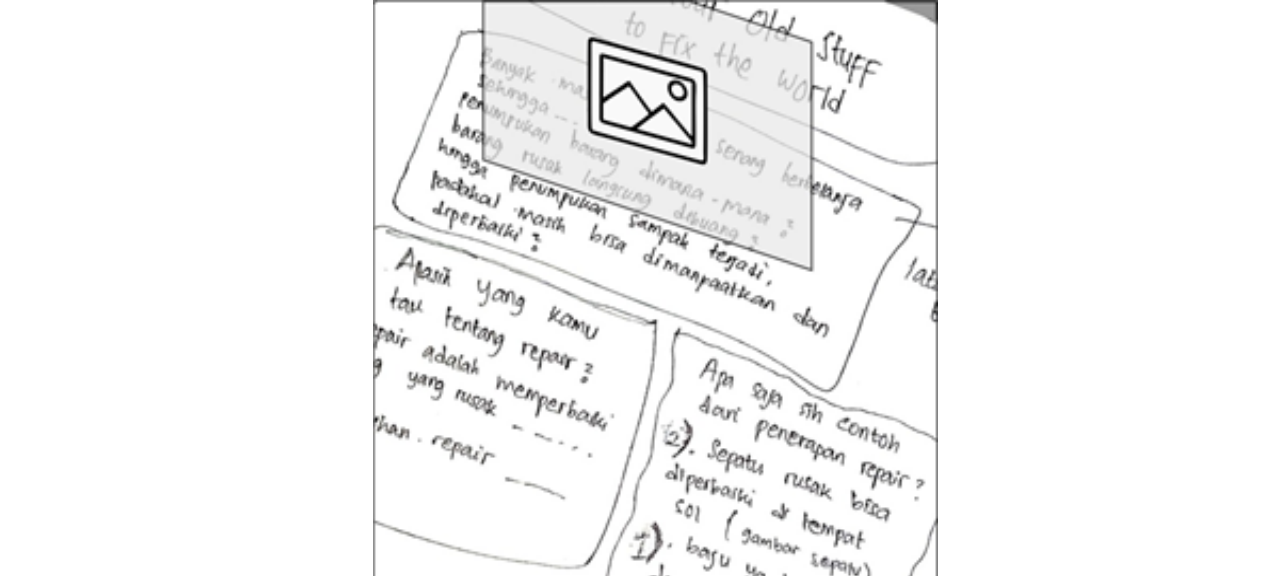 Old Stuff
to Fix the World
Banyak
sehingga ... senang berbelanja
penumpukan barang dimana-mana?
barang rusak langsung dibuang?
hingga penumpukan sampah terjadi,
padahal masih bisa dimanpaatkan dan
diperbaiki?
Apasih yang kamu
tau tentang repair?
epair adalah memperbaiki
g yang rusak -----
han repair ___
Apa saja sih contoh
dari penerapan repair?
2). Sepatu rusak bisa
diperbaiki di tempat
sol (gambar sepatu)
1). baju